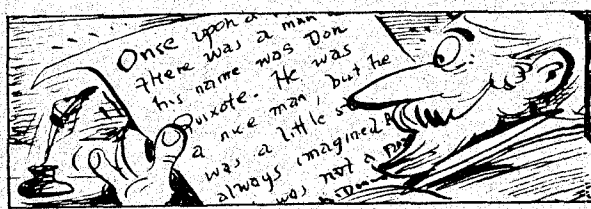 Onse upon a
there was a man
his name was Don
Quixote. He was
a nice man, but he
was a little
always imagined
was not a